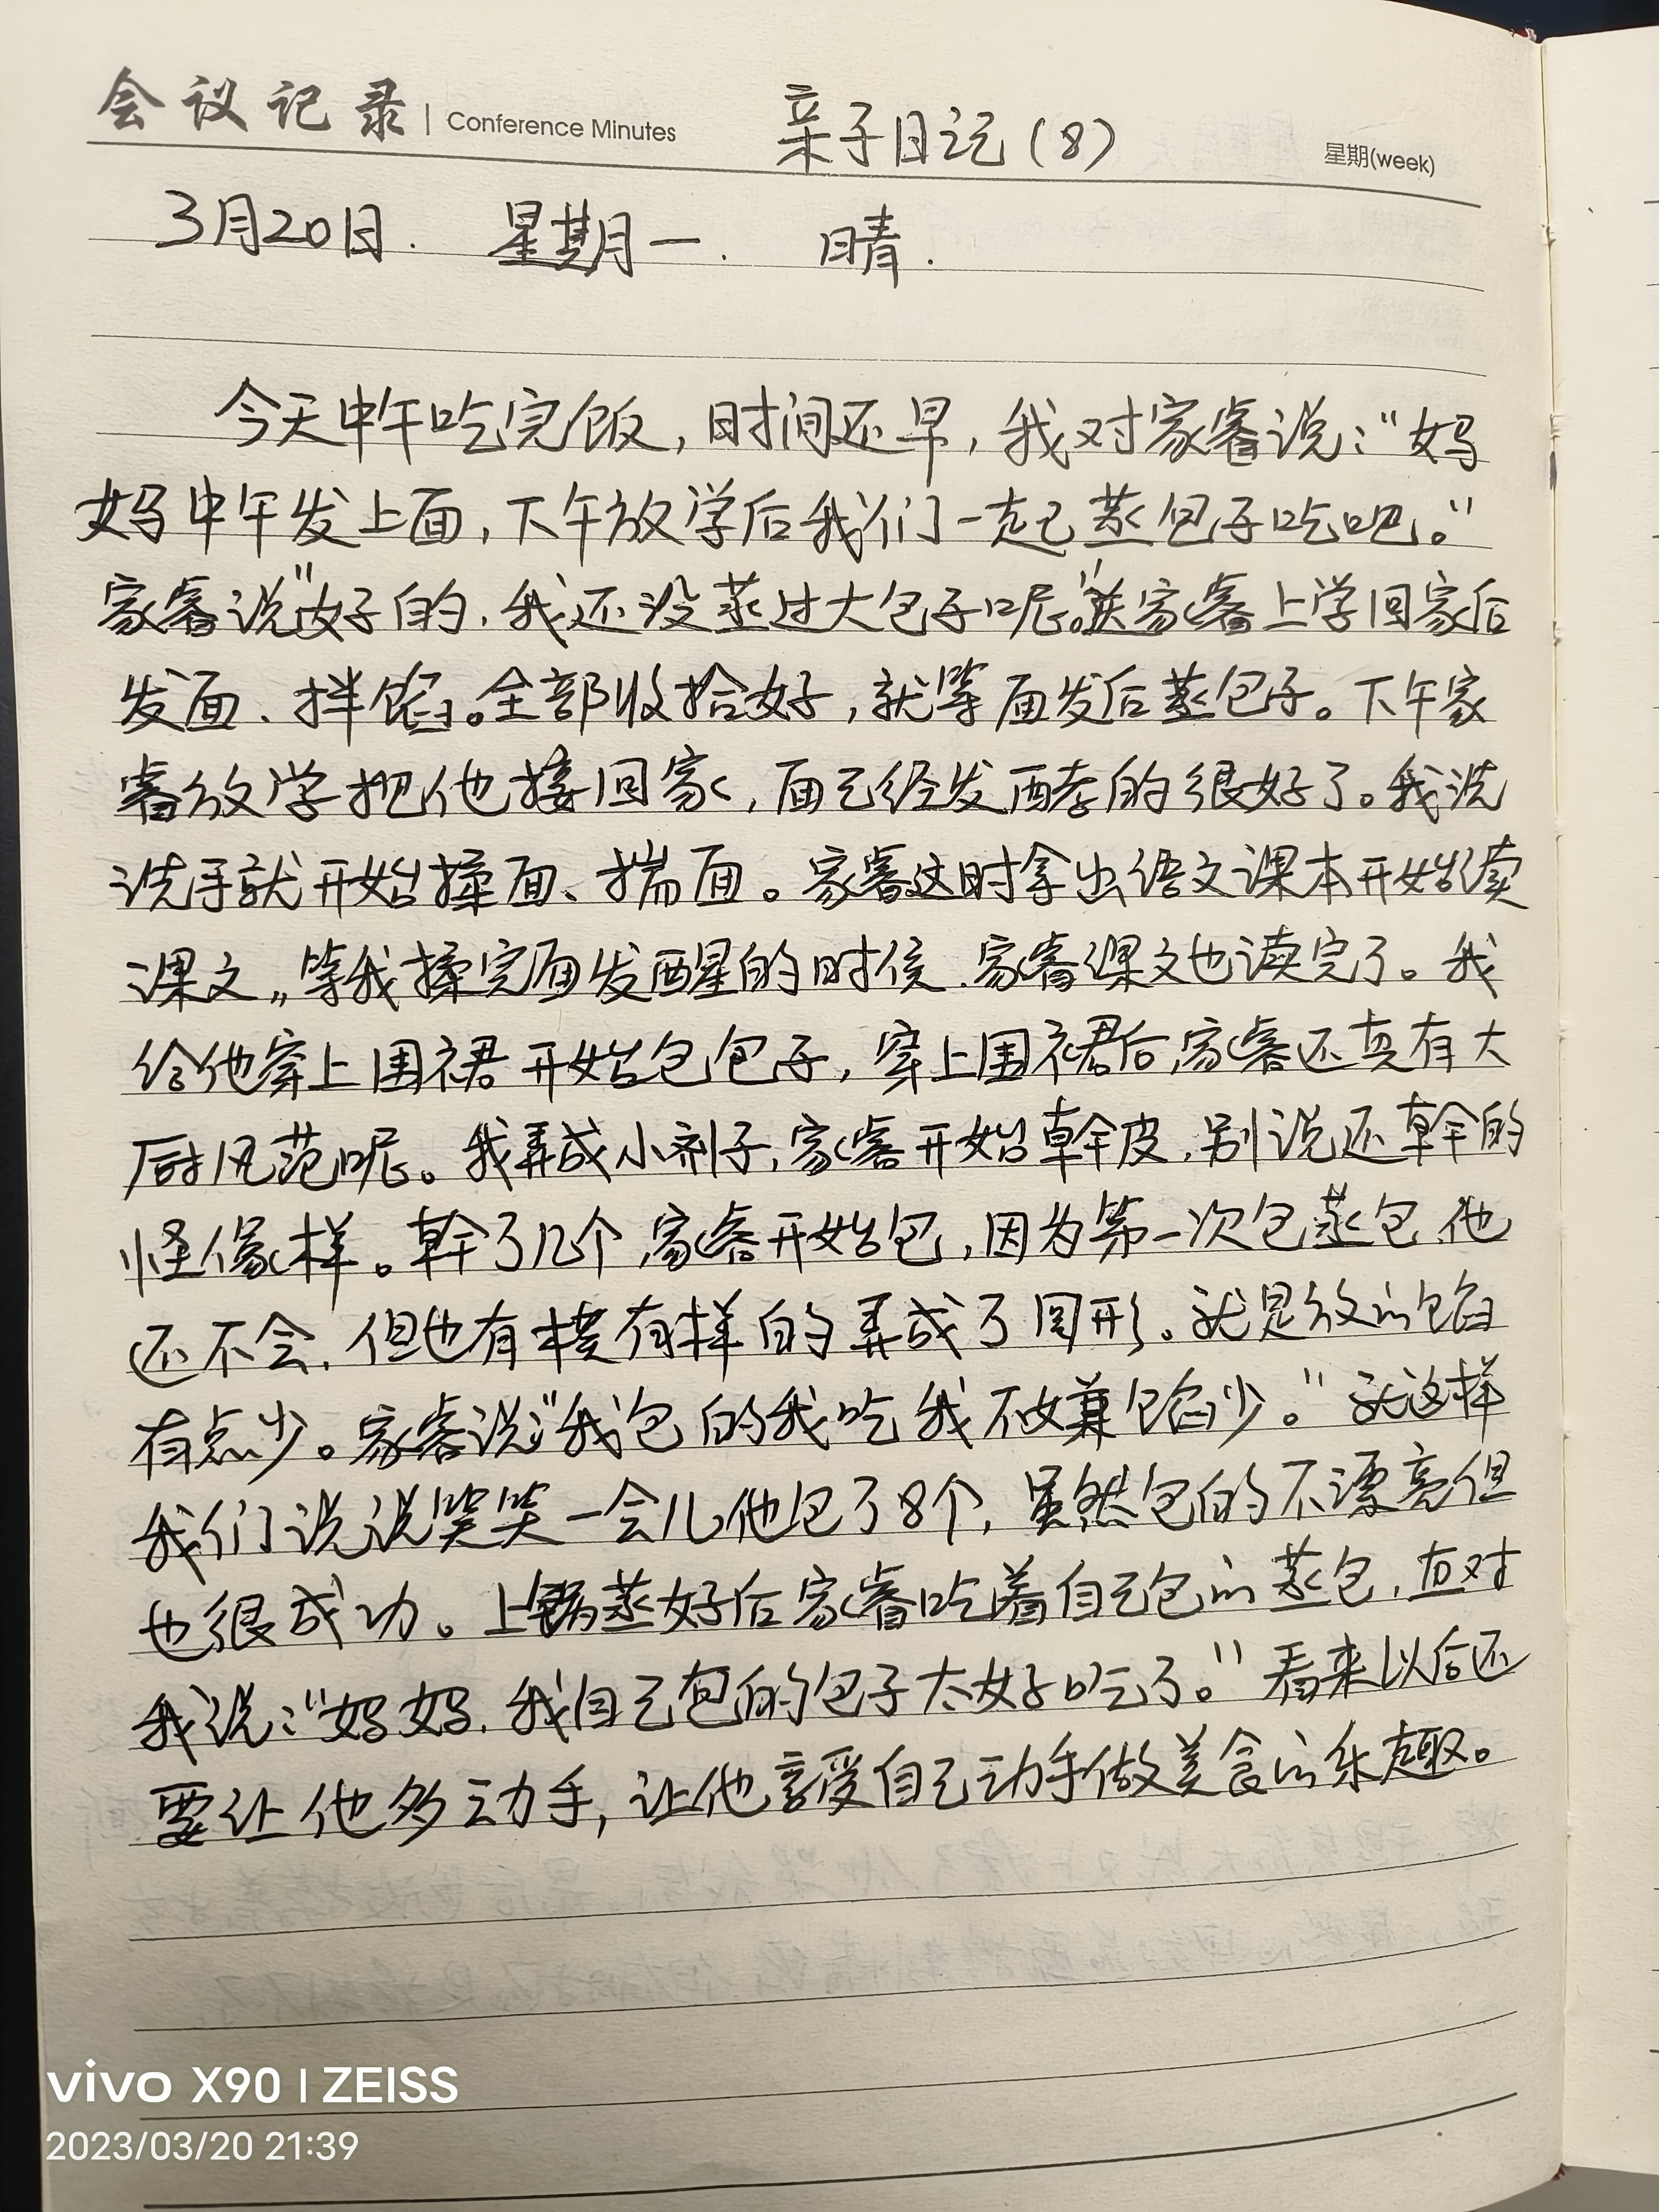 会议记录 | Conference Minutes 亲子日记(8) 星期(week)
3月20日. 星期一. 晴.
今天中午吃完饭,时间还早,我对家睿说:“妈
妈中午发上面,下午放学后我们一起蒸包子吃吧。”
家睿说“好的,我还没蒸过大包子呢。”送家睿上学回家后
发面、拌馅。全部收拾好,就等面发后蒸包子。下午家
睿放学把他接回家,面已经发酵的很好了。我洗
洗手就开始揉面、揣面。家睿这时拿出语文课本开始读
课文,,等我揉完面发醒的时候.家睿课文也读完了。我
给他穿上围裙开始包包子,穿上围裙后,家睿还真有大
厨风范呢。我弄成小剂子,家睿开始擀皮,别说还擀的
怪像样。擀了几个,家睿开始包,因为第一次包蒸包,他
还不会,但也有模有样的弄成了圆形。就是放的馅
有点少。家睿说:“我包的我吃我不嫌馅少。”就这样
我们说说笑笑一会儿他包了8个,虽然包的不漂亮但
也很成功。上锅蒸好后家睿吃着自己包的蒸包,直对
我说:“妈妈,我自己包的包子太好吃了。”看来以后还
要让他多动手,让他享受自己动手做美食的乐趣。
vivo X90 | ZEISS
2023/03/20 21:39